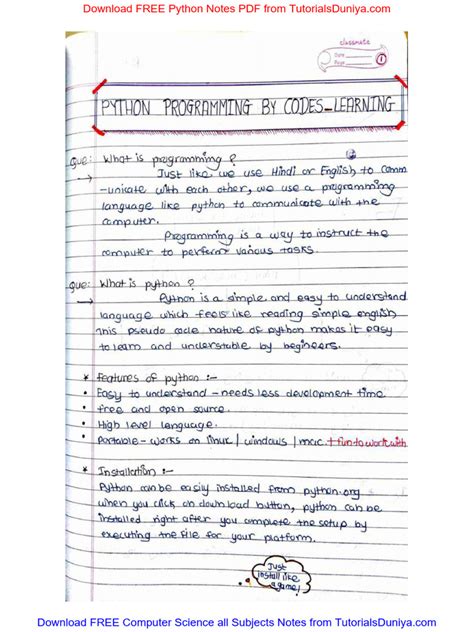 Download FREE Python Notes PDF from TutorialsDuniya.com
classmate
Date
Page
1
PYTHON PROGRAMMING BY CODES_LEARNING
Que: What is programming ?
Just like we use Hindi or English to comm
-unicate with each other, we use a programming
language like python to communicate with the
computer.
Programming is a way to instruct the
computer to perform various tasks.
Que: What is python ?
Python is a simple and easy to understand
language which feels like reading simple english
This pseudo code nature of python makes it easy
to learn and understable by begineers.
* Features of python :-
• Easy to understand - needs less development time
• free and open source.
• High level language.
• Portable - works on linux / windows / mac. + fun to work with
* Installation :-
Python can be easily installed from python.org
when you click on download button, python can be
installed right after you complete the setup by
executing the file for your platform.
Just
install like
a game!
Download FREE Computer Science all Subjects Notes from TutorialsDuniya.com